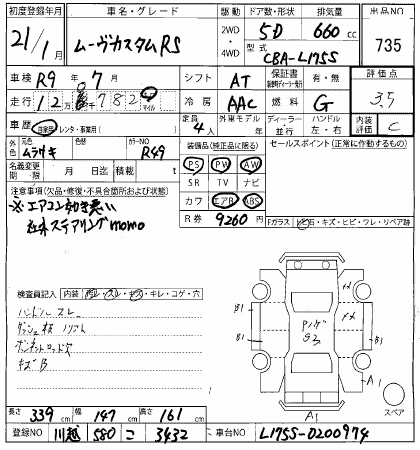 初度登録年月 車名・グレード 駆動 ドア数・形状 排気量 出品NO
21/1月 ムーヴカスタムRS 2WD・4WD 5D 660cc 735
型式 CBA-L175S
車検 R9年7月 シフト AT 保証書 有・無 評価点
走行 12万 782 マイル 冷房 AAC 燃料 G 3.5
車歴 自家用 レンタ・事業用( ) 定員 4人 外車モデル 年 ディーラー・並行 ハンドル 左・右 内装評価 C
外色 ムラサキ 色替 カラーNO R49 装備品(純正品に限る) セールスポイント(正常に作動するもの)
名義変更期限 月 日迄 積載 t PS PW AW
SR TV ナビ
注意事項(欠品・修復・不具合箇所および状態) カワ エアB ABS
※エアコン効き悪い R券 9260円 Fガラス 石・キズ・ヒビ・ワレ・リペア跡
社外ステアリングmomo
検査員記入 内装 ・スレ・キズ・キレ・コゲ・穴
ハンドルスレ
キズB
B1 B1 A1 A1
スペア
長さ 339cm 幅 147cm 高さ 161cm
登録NO 川越 580 こ 3432 車台NO L175S-0200974